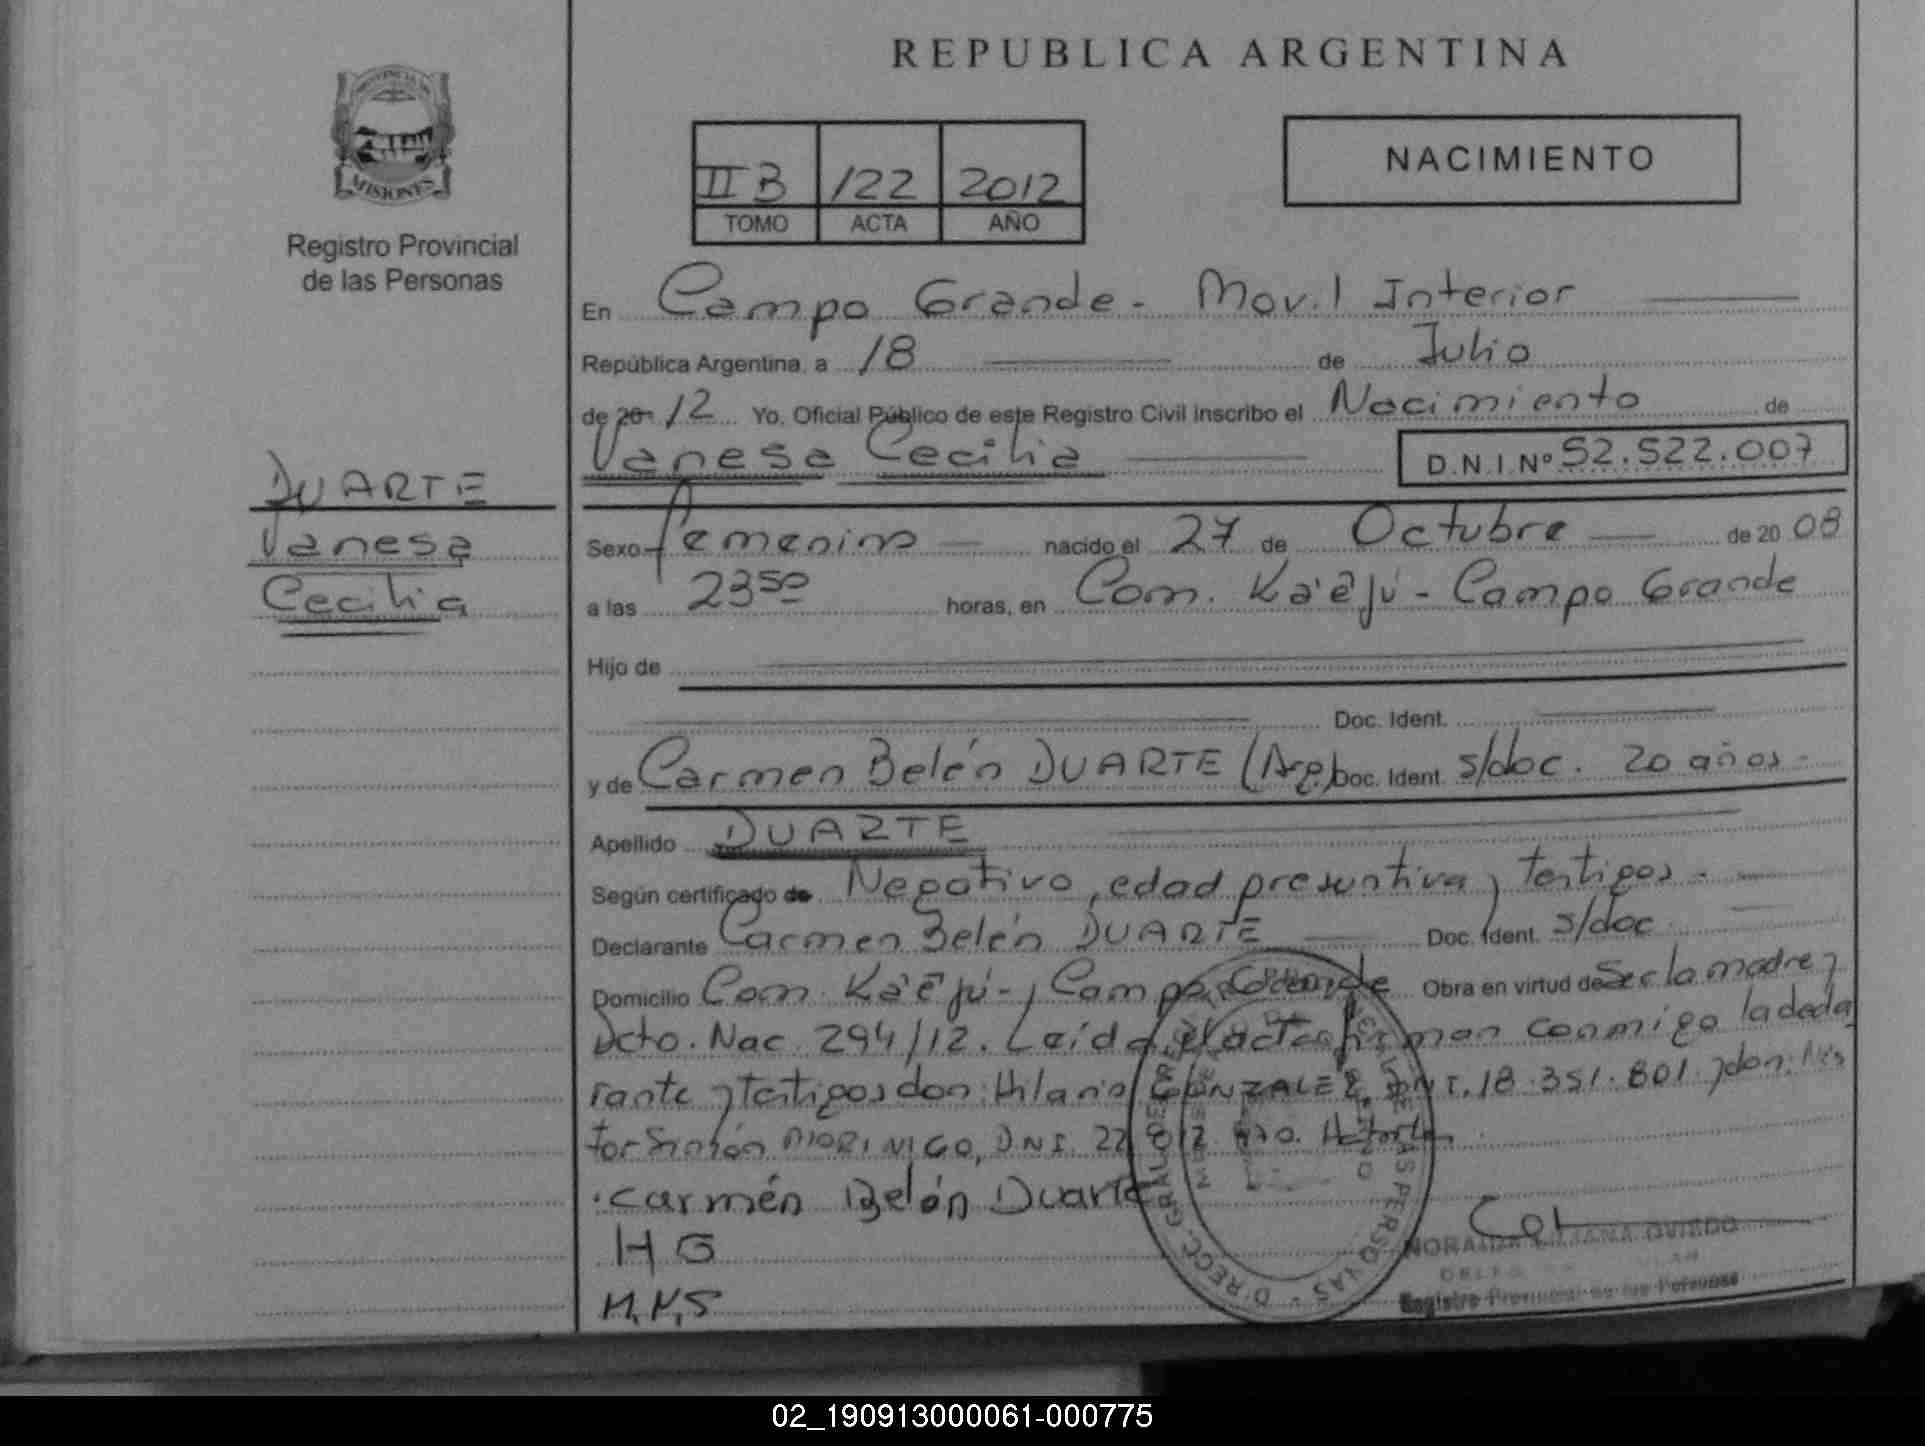 REPUBLICA ARGENTINA
MISIONES
Registro Provincial
de las Personas
II B 122 2012
TOMO ACTA AÑO
NACIMIENTO
En Campo Grande - Movil Interior
República Argentina, a 18 de Julio
de 20 12 Yo, Oficial Público de este Registro Civil inscribo el Nacimiento de
Vanesa Cecilia D.N.I.Nº 52.522.007
DUARTE
Vanesa
Cecilia
Sexo femenino nacido el 27 de Octubre de 20 08
a las 23 50 horas, en Com. Ka'ẽjú - Campo Grande
Hijo de
Doc. Ident.
y de Carmen Belén DUARTE (Arg.) Doc. Ident. s/doc. 20 años -
Apellido DUARTE
Según certificado de Negativo, edad presuntiva y testigos -
Declarante Carmen Belén DUARTE Doc. Ident. s/doc
Domicilio Com. Ka'ẽjú - Campo Grande Obra en virtud de Ser la madre y
Dcto. Nac. 294/12. Leída el acta firman conmigo la decla
rante y testigos don: Hilario GONZALEZ, DNI. 18.351.801 y don: Nés
tor Simón MORINIGO, DNI. 22
Carmén Belén Duarte
H G
M, N, S
NORAIDA LILIANA OVIEDO
Registro Provincial de las Personas
02_190913000061-000775